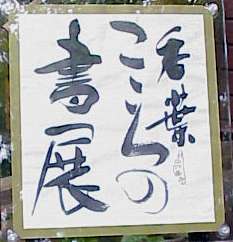 活葉
こころの
書展